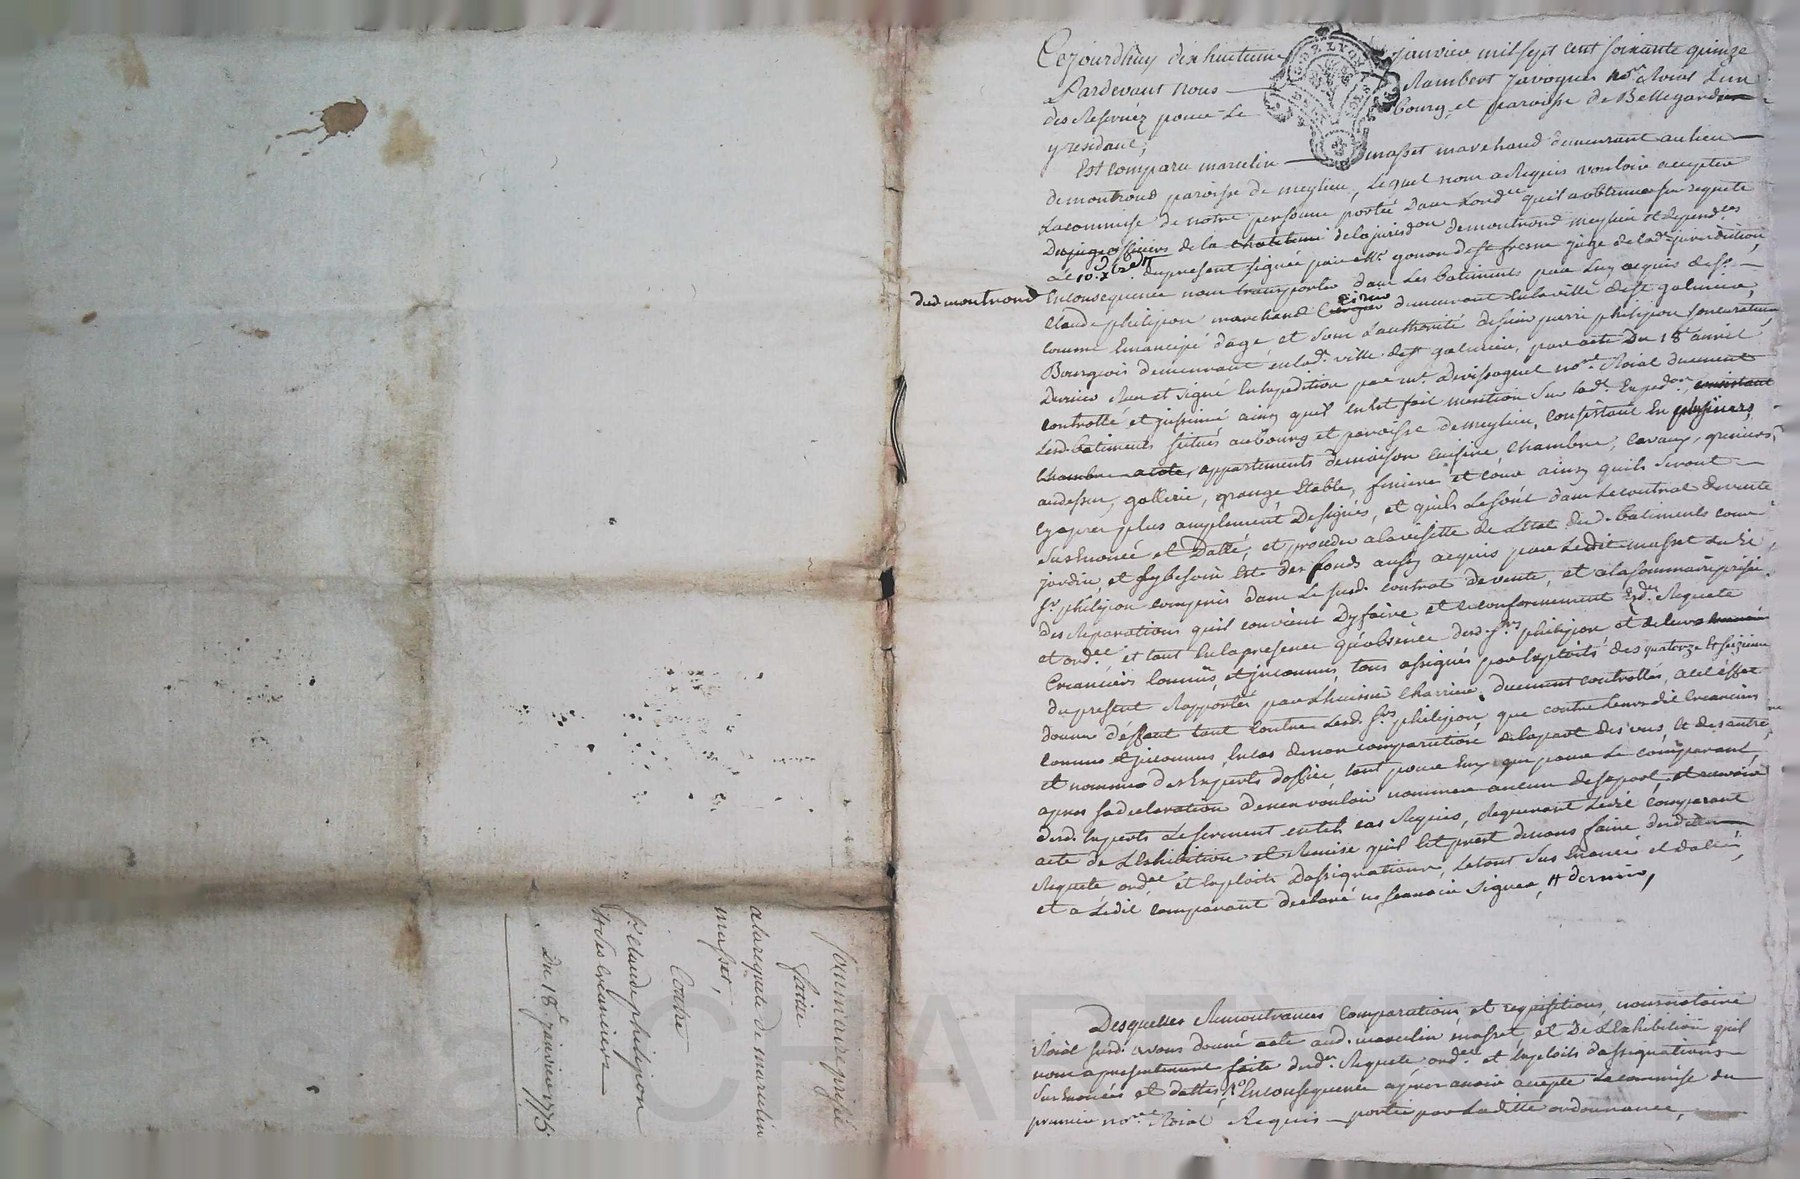 Cejourdhuy dix huitieme janvier mil sept cent soixante quinze
Pardevant nous Rambert Javogues no.re Roial L'un
des Reservéz pour Le bourg et paroisse de Bellegarde
y residant,
Est comparu marcelin masset marchand demeurant au lieu
de montrond paroisse de meylieu, Lequel nous a Requis vouloir accepter
La commise de notre personne portée dans Lord.ce qu'il a obtenue sur requete
Des juge officiers de la chatelenie de la jurisd.on de montrond meylieu et depend.ces
Le 10. du present signée par M.r gonon de st fresne juge de lad. jurisdiction,
dud. montrond
En consequence nous transporter dans Les batiments par Luy acquis de s.r
Claude philipon marchand demeurant en la ville de st galmier,
comme Emancipé d'age, et sous L'authorité de sieur pierre philipon son curateur
Bourgeois demeurant en lad. ville de st galmier, par acte Du 18.e avril
Dernier Reçu et signé En expedition par m.e no.re Roial duement
controllé et insinué ainsy qu'il En est fait mention sur lad. Exped.on consistant
Lesd. batiments situés au bourg et paroisse de meylieu, consistant En plusieurs
chambres a coté, appartements de maison cuisine, chambre, caveaux, greniers
au dessus, gallerie, grange Etable, feniere et cour ainsy qu'ils seront
cy apres plus amplement Designés, et qu'ils Le sont dans Le contrat de vente
sus Enoncé et Datté, et proceder a la visitte de L'état desd. batiments cour
jardin, et sy besoin Est des fonds aussy acquis par Le dit masset dud.
s.r philipon compris dans Le susd. contrat de vente, et a la sommaire prisée
des Reparations qu'il convient D'y faire et ce conformement Esd. Requete
et ord.ce et tant En la presence qu'absence desd. s.rs philipon et de leurs
Creanciers connus et inconnus, tous assignés par Exploits des quatorze et seizieme
du present Rapportés par L'huissier Charriere, duement controllés, a cet effet
donner deffaut tant contre Lesd. s.rs philipon, que contre Leurs dit Creanciers
connus et inconnus, En cas de non comparution de la part des uns, et des autres
et nommer des Experts d'office, tant pour Eux que pour Le comparant,
apres sa declaration de n'en vouloir nommer aucun de sa part et recevoir
desd. Experts Le serment en tels cas Requis, Requerant Ledit Comparant
acte de L'Exhibition et Remise qu'il Est prest de nous faire desdittes
Requete ord.ce et Exploits D'assignations, Le tout sus Enoncé et datté,
et a Ledit comparant declaré ne sçavoir signer, # dernier,
Desquelles Remontrances Comparutions, et requisitions, nous notaire
Roial susd. avons donné acte aud. marcelin masset, et De L'Exhibition qu'il
nous a presentement faite desd. Requete ord.ce et Exploits d'assignations
sus enoncés et dattés, En consequence apres avoir accepté La commise du
premier no.re Roial Requis portée par Laditte ordonnance,
Sommaire prisée
faitte
a la requete de marcelin
masset,
Contre
S.r Claude philipon
et ses creanciers
Du 18.e janvier 1775